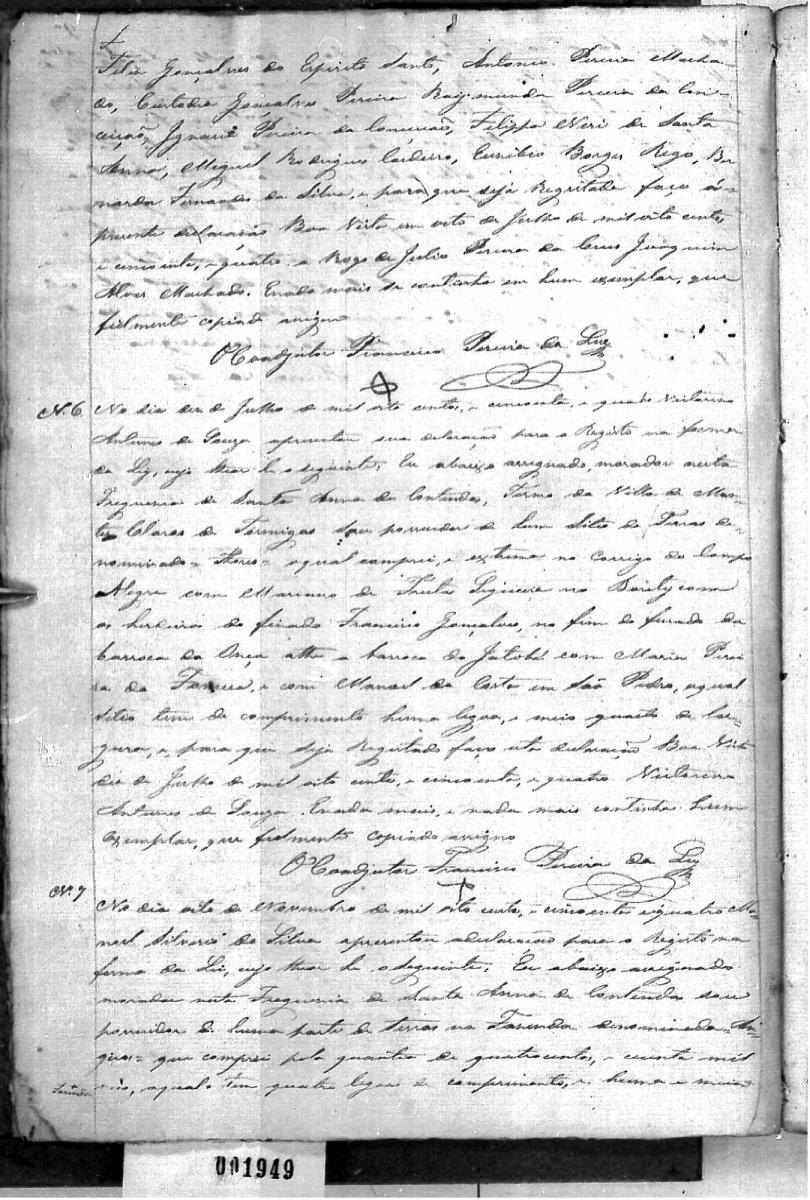 Felis Gonçalves do Espirito Santo, Antonio Pereira Macha-
do, Custodio Gonçalves Pereira Raymunda Pereira da Con-
ceição, Ignacio Pereira da Conceição, Filippe Neri de Santa
Anna, Miguel Rodrigues Cordeiro, Euzebio Borges Rego, Ber-
narda Fernandes da Silva, e para que seja Registada faco á-
prezente declaração Boa Vista em oito de Julho de mil oito centos,
e cincoenta, e quatro. a Rogo de Julio Pereira da Cruz Joaquim
Alves Machado. Enada mais se continha em hum exemplar, que
fielmente copiado assigno
O Coadjutor Francisco Pereira da Luz
N. 6 No dia dez de Julho de mil oito centos, e cincoenta, e quatro Victorino
Antunes de Souza apresentou sua declaração para o Registo na forma
da Ley, cujo theor he o seguinte: Eu abaixo assignado, morador nesta
Freguesia de Santa Anna de Contendas, Termo da Villa de Mon-
tes Claros de Formigas sou possuidor de hum Sitio de Terras de-
nominado = = aqual comprei, e extrema no corrigo do Campo
Negro com Mariano de Siqueira no Boritý com
os herdeiros do finado Francisco Gonçalves, no fim do furado da
barroca da Onça athe a barroca do Jatobá com Maria Perei-
ra da Fonseca, e com Manoel da Costa em São Pedro, aqual
Sitio tem de comprimento huma legoa, e meio quarto de lar-
gura, e para que seja Registado faço esta declaração Boa Vista
dez de Julho de mil oito centos, e cincoenta, e quatro Victorino
Antunes de Souza. Enada mais, e nada mais continha hum
exemplar, que fielmente copiado assigno
O Coadjutor Francisco Pereira da Luz
N. 7 No dia oito de Novembro de mil oito cento, e cincoenta equatro Ma-
noel Silverio da Silva apresentou adeclaração para o Registo na
forma da Lei, cujo theor he o seguinte: Eu abaixo assignado
morador nesta Freguesia de Santa Anna de Contendas sou
possuidor de huma parte de terras na Fazenda denominada =
= que comprei pela quantia de quatrocentos, e mil
reis, aqual tem quatro legoas de comprimento, e huma e meia
001949